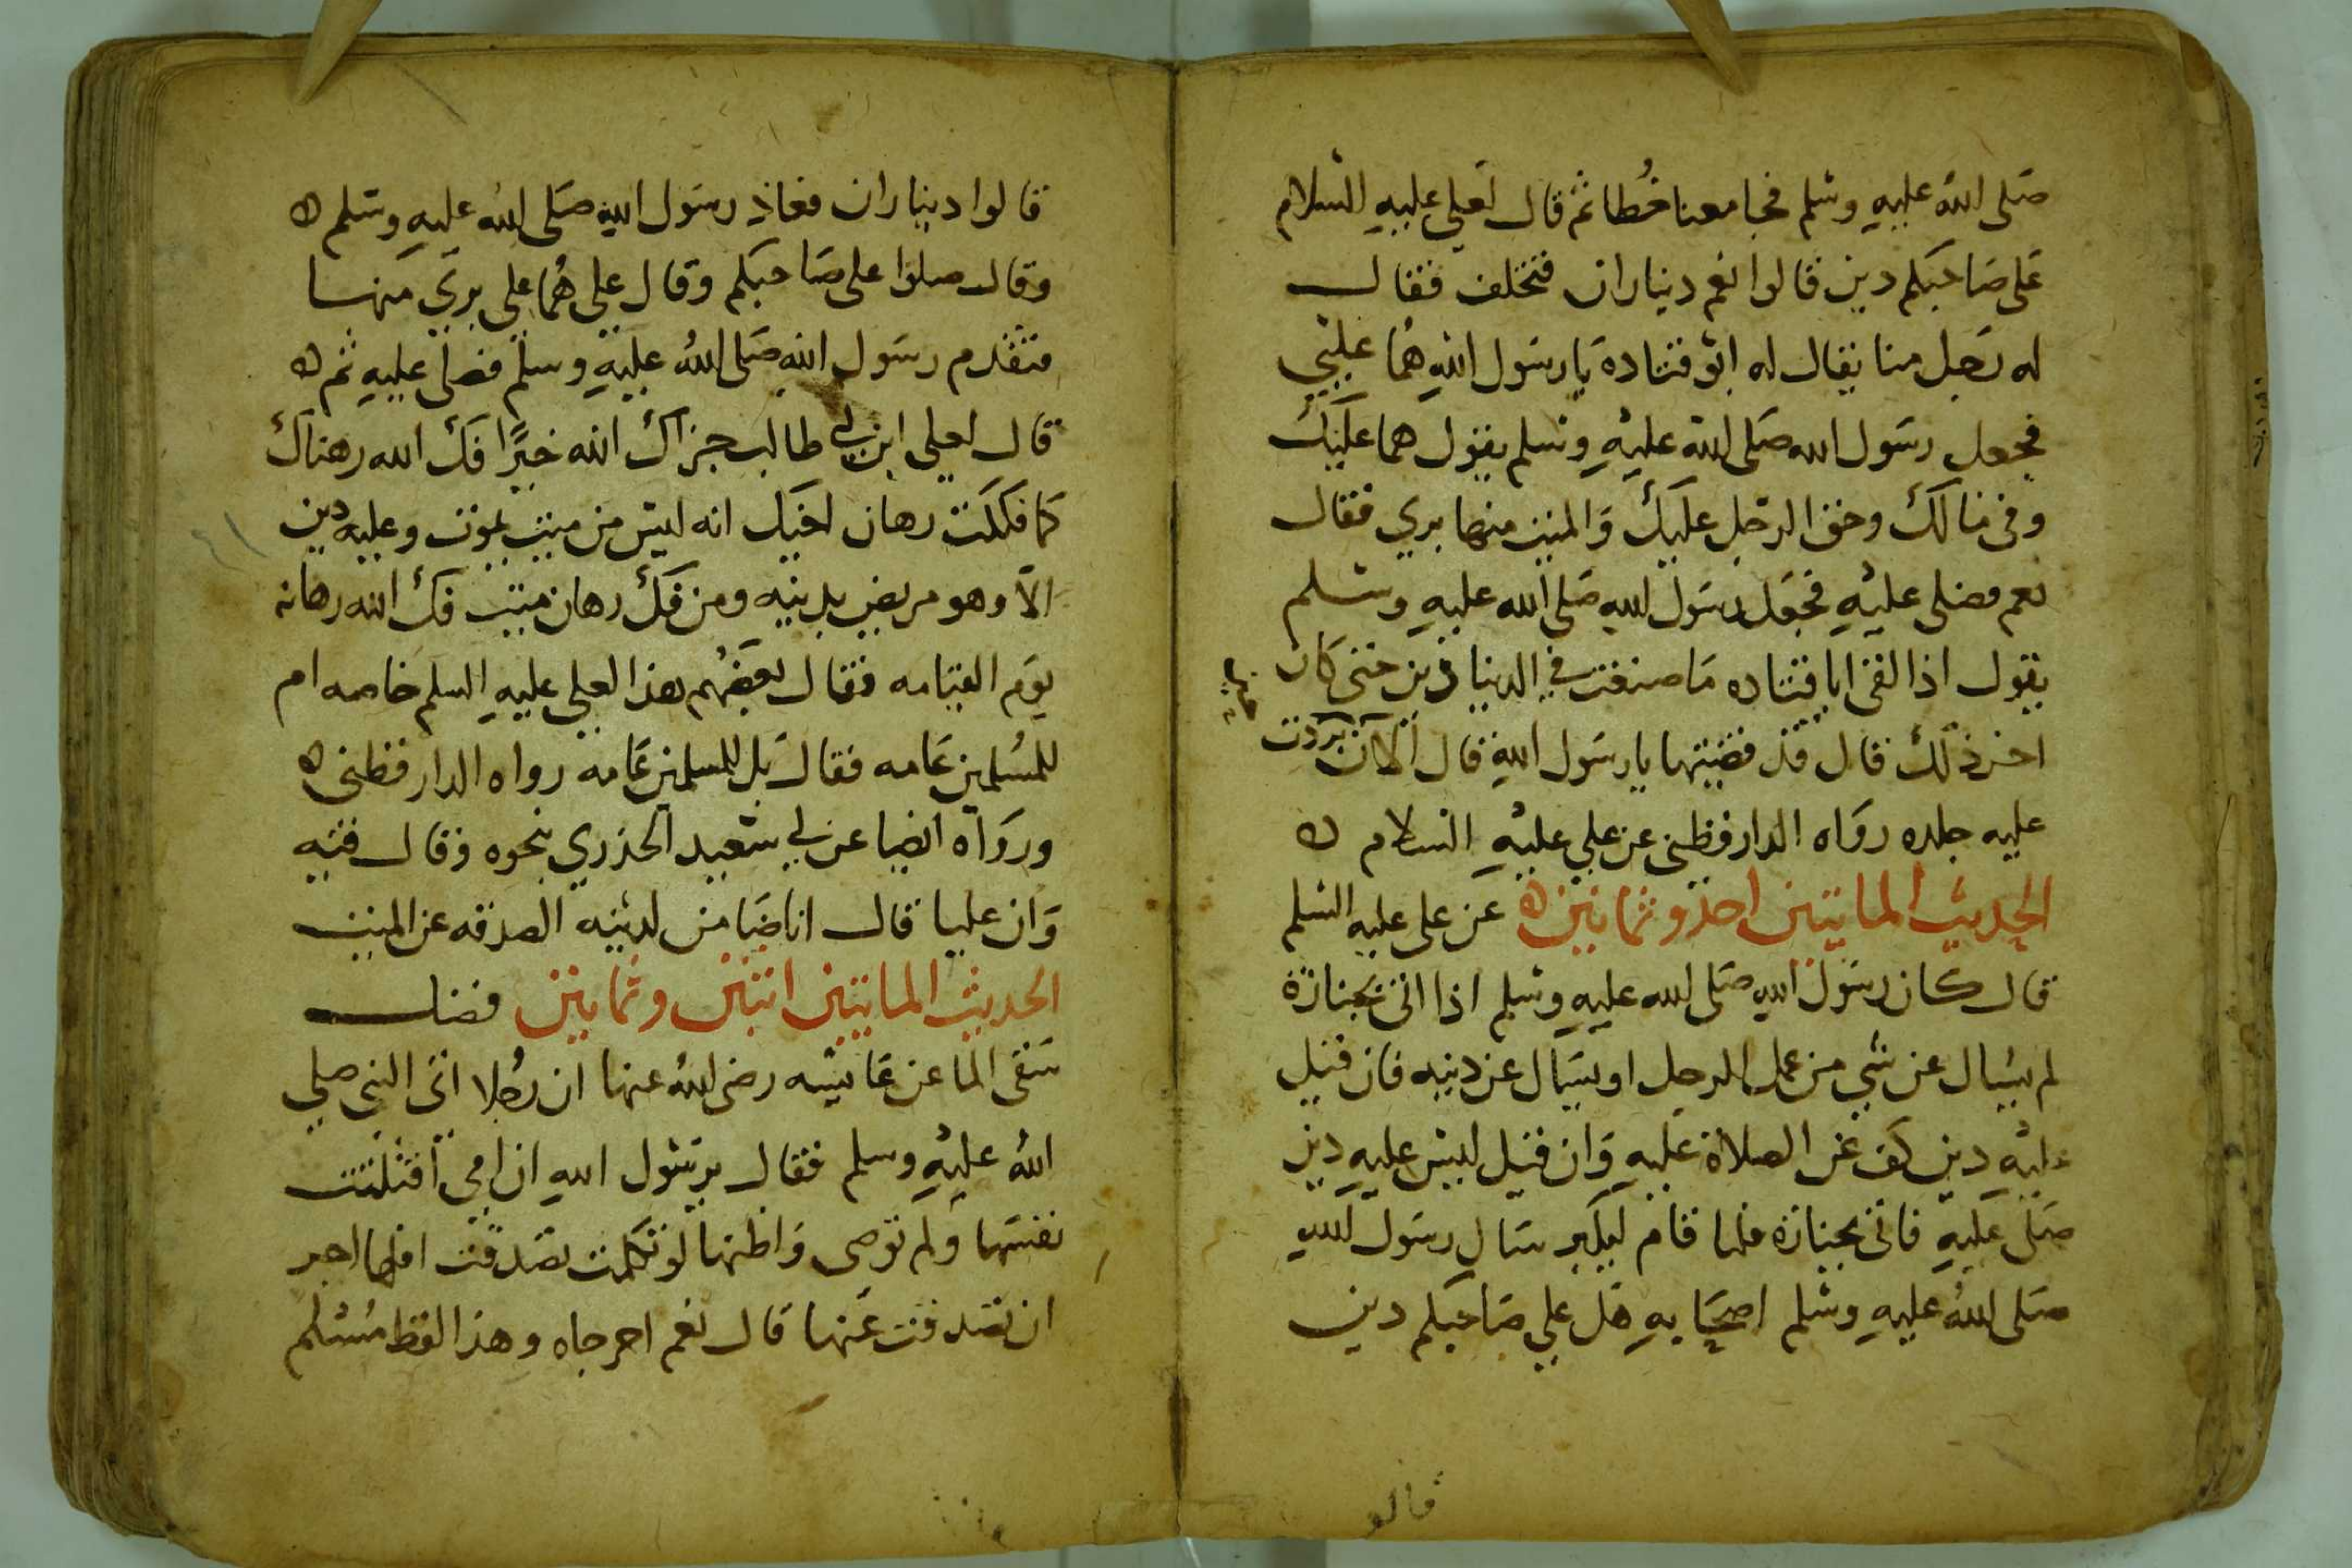 صلى الله عليه وسلم فجا معنا خُطا ثم قال لعلي عليه السلام
على صاحبكم دين قالوا نعم ديناران فتخلف فقال
له رجل منا يقال له ابو قتادة يا رسول الله هُما عليّ
فجعل رسول الله صلى الله عليه وسلم يقول هما عليك
وفي مالك وحق الرجل عليك والميت منهما بري فقال
نعم فصلى عليه فجعل رسول الله صلى الله عليه وسلم
يقول اذا لقى ابا قتاده ما صنعت في الدينارين حتى كان
اخر ذلك قال قد قضيتها يا رسول الله قال الآن بردت
عليه جلده رواه الدارقطني عن علي عليه السلام ه
الحديث المايتين احد وثمانين ه عن على عليه السلم
قال كان رسول الله صلى الله عليه وسلم اذا اتى بجنازة
لم يسال عن شي من عمل الرجل او يسال عن دينه فان قيل
عليه دين كف عن الصلاة عليه وان قيل ليس عليه دين
صلى عليه فاتى بجنازة فلما قام ليكبر سال رسول الله
صلى الله عليه وسلم اصحابه هل على صاحبكم دين
قالو
قالوا ديناران فعاذ رسول الله صلى الله عليه وسلم ه
وقال صلوا على صاحبكم وقال علي هُما علي بري منهما
فتقدم رسول الله صلى الله عليه وسلم فصلى عليه ثم ه
قال لعلي ابن ابي طالب جزاك الله خيرًا فك الله رهناك
كما فككت رهان اخيك انه ليس من ميت يموت وعليه دين
الا وهو مريض بدينه ومن فك رهان ميت فك الله رهانه
يوم القيامه فقال بعضهم هذا لعلي عليه السلم خاصه ام
للمسلمين عامه فقال بل للمسلمين عامه رواه الدارقطني ه
ورواه ايضا عن ابي سعيد الخدري بنحوه وقال فيه
وان عليا قال انا ضامن لدينه الصدقه عن الميت
الحديث المايتين اثنين وثمانين فضل
سقى الما عن عايشه رضى الله عنها ان رجلا اتى النبي صلى
الله عليه وسلم فقال يرسول الله ان امي افتلتت
نفسها ولم توصى واظنها لو تكلمت تصدقت افلها اجر
ان تصدقت عنها قال نعم اخرجاه وهذا لفظ مسلم